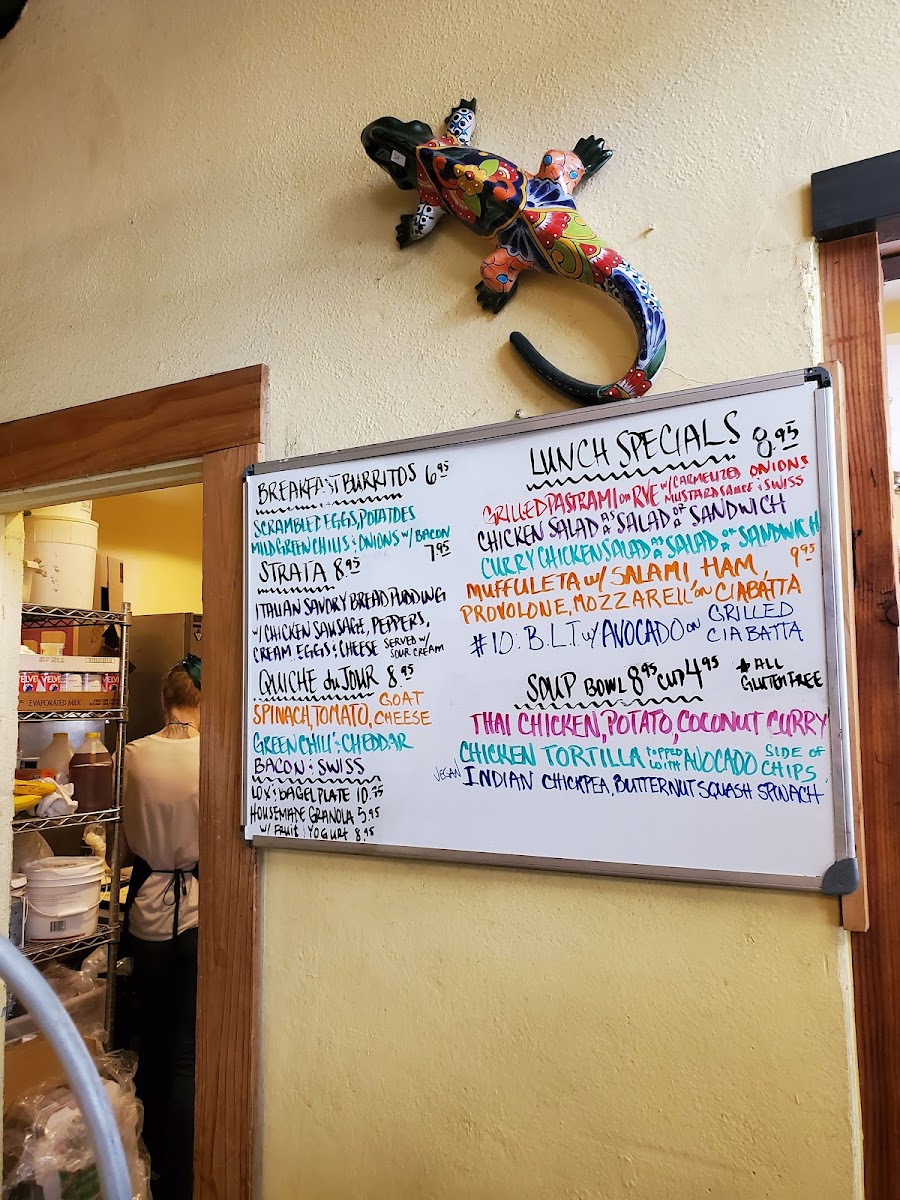 BREAKFAST BURRITOS 6.95
SCRAMBLED EGGS, POTATOES
MILD GREEN CHILIS & ONIONS w/ BACON
7.95
STRATA 8.95
ITALIAN SAVORY BREAD PUDDING
w/ CHICKEN SAUSAGE, PEPPERS,
CREAM, EGGS & CHEESE SERVED w/ SOUR CREAM
QUICHE du JOUR 8.95
SPINACH, TOMATO, GOAT CHEESE
GREEN CHILI & CHEDDAR
BACON & SWISS
LOX & BAGEL PLATE 10.75
HOUSEMADE GRANOLA 5.95
w/ FRUIT & YOGURT 8.95
LUNCH SPECIALS 8.95
GRILLED PASTRAMI on RYE w/ CARMELIZED ONIONS
MUSTARD SAUCE & SWISS
CHICKEN SALAD AS A SALAD OR A SANDWICH
CURRY CHICKEN SALAD AS A SALAD OR A SANDWICH
MUFFULETA w/ SALAMI, HAM, 9.95
PROVOLONE, MOZZARELL on CIABATTA
#10: B.L.T. w/ AVOCADO on GRILLED
CIABATTA
SOUP BOWL 8.95 CUP 4.95 *ALL
GLUTEN FREE
THAI CHICKEN, POTATO, COCONUT CURRY
CHICKEN TORTILLA TOPPED WITH AVOCADO SIDE OF CHIPS
VEGAN INDIAN CHICKPEA, BUTTERNUT SQUASH SPINACH
EVAPORATED MILK